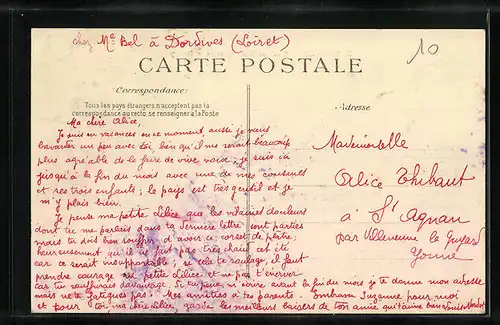 chez Me Bel à Dordives (Loiret)
10
CARTE POSTALE
Correspondance:
Tous les pays étrangers n'acceptent pas la
correspondance au recto, se renseigner à la Poste
Adresse
Ma chère Alice,
Je suis en vacances en ce moment, aussi je veux
bavarder un peu avec toi bien qu'il me serait beaucoup
plus agréable de le faire de vive voix; je suis ici
jusqu'à la fin du mois avec une de mes
et ses trois enfants; le pays est très gentil et je
m'y plais bien.
Je pense ma petite Lilice que les vilaines douleurs
dont tu me parlais dans ta dernière lettre sont parties
mais tu dois bien souffrir d'avoir ce corset de plâtre;
heureusement qu'il ne fait pas très chaud cet été
car ce serait insupportable; si cela te soulage, il faut
prendre courage petite Lilice et ne pas t'énerver
car tu souffrirais davantage. Si tu peux m'écrire avant la fin du mois je te donne mon adresse
mais ne te fatigues pas. Mes amitiés à tes parents. Embrasse Suzanne pour moi
et pour toi, ma chère Lilice, garde les meilleurs baisers de ton amie qui t'aime
Mademoiselle
Alice Thibaut
à St Agnan
par Villeneuve la Guyard
Yonne